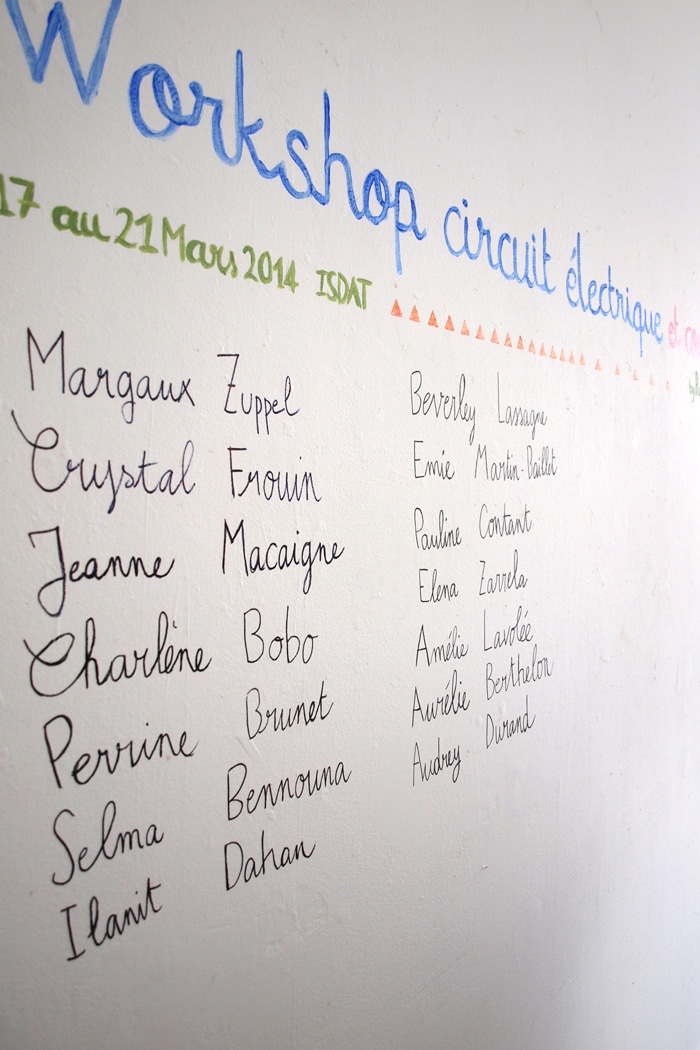 Workshop circuit électrique et
17 au 21 Mars 2014 ISDAT
Margaux Zuppel
Crystal Frouin
Jeanne Macaigne
Charlène Bobo
Perrine Brunet
Selma Bennouna
Ilanit Dahan
Beverley Lassagne
Emie Martin-Baillot
Pauline Contant
Elena Zarrela
Amélie Lavolée
Aurélie Berthelon
Audrey Durand